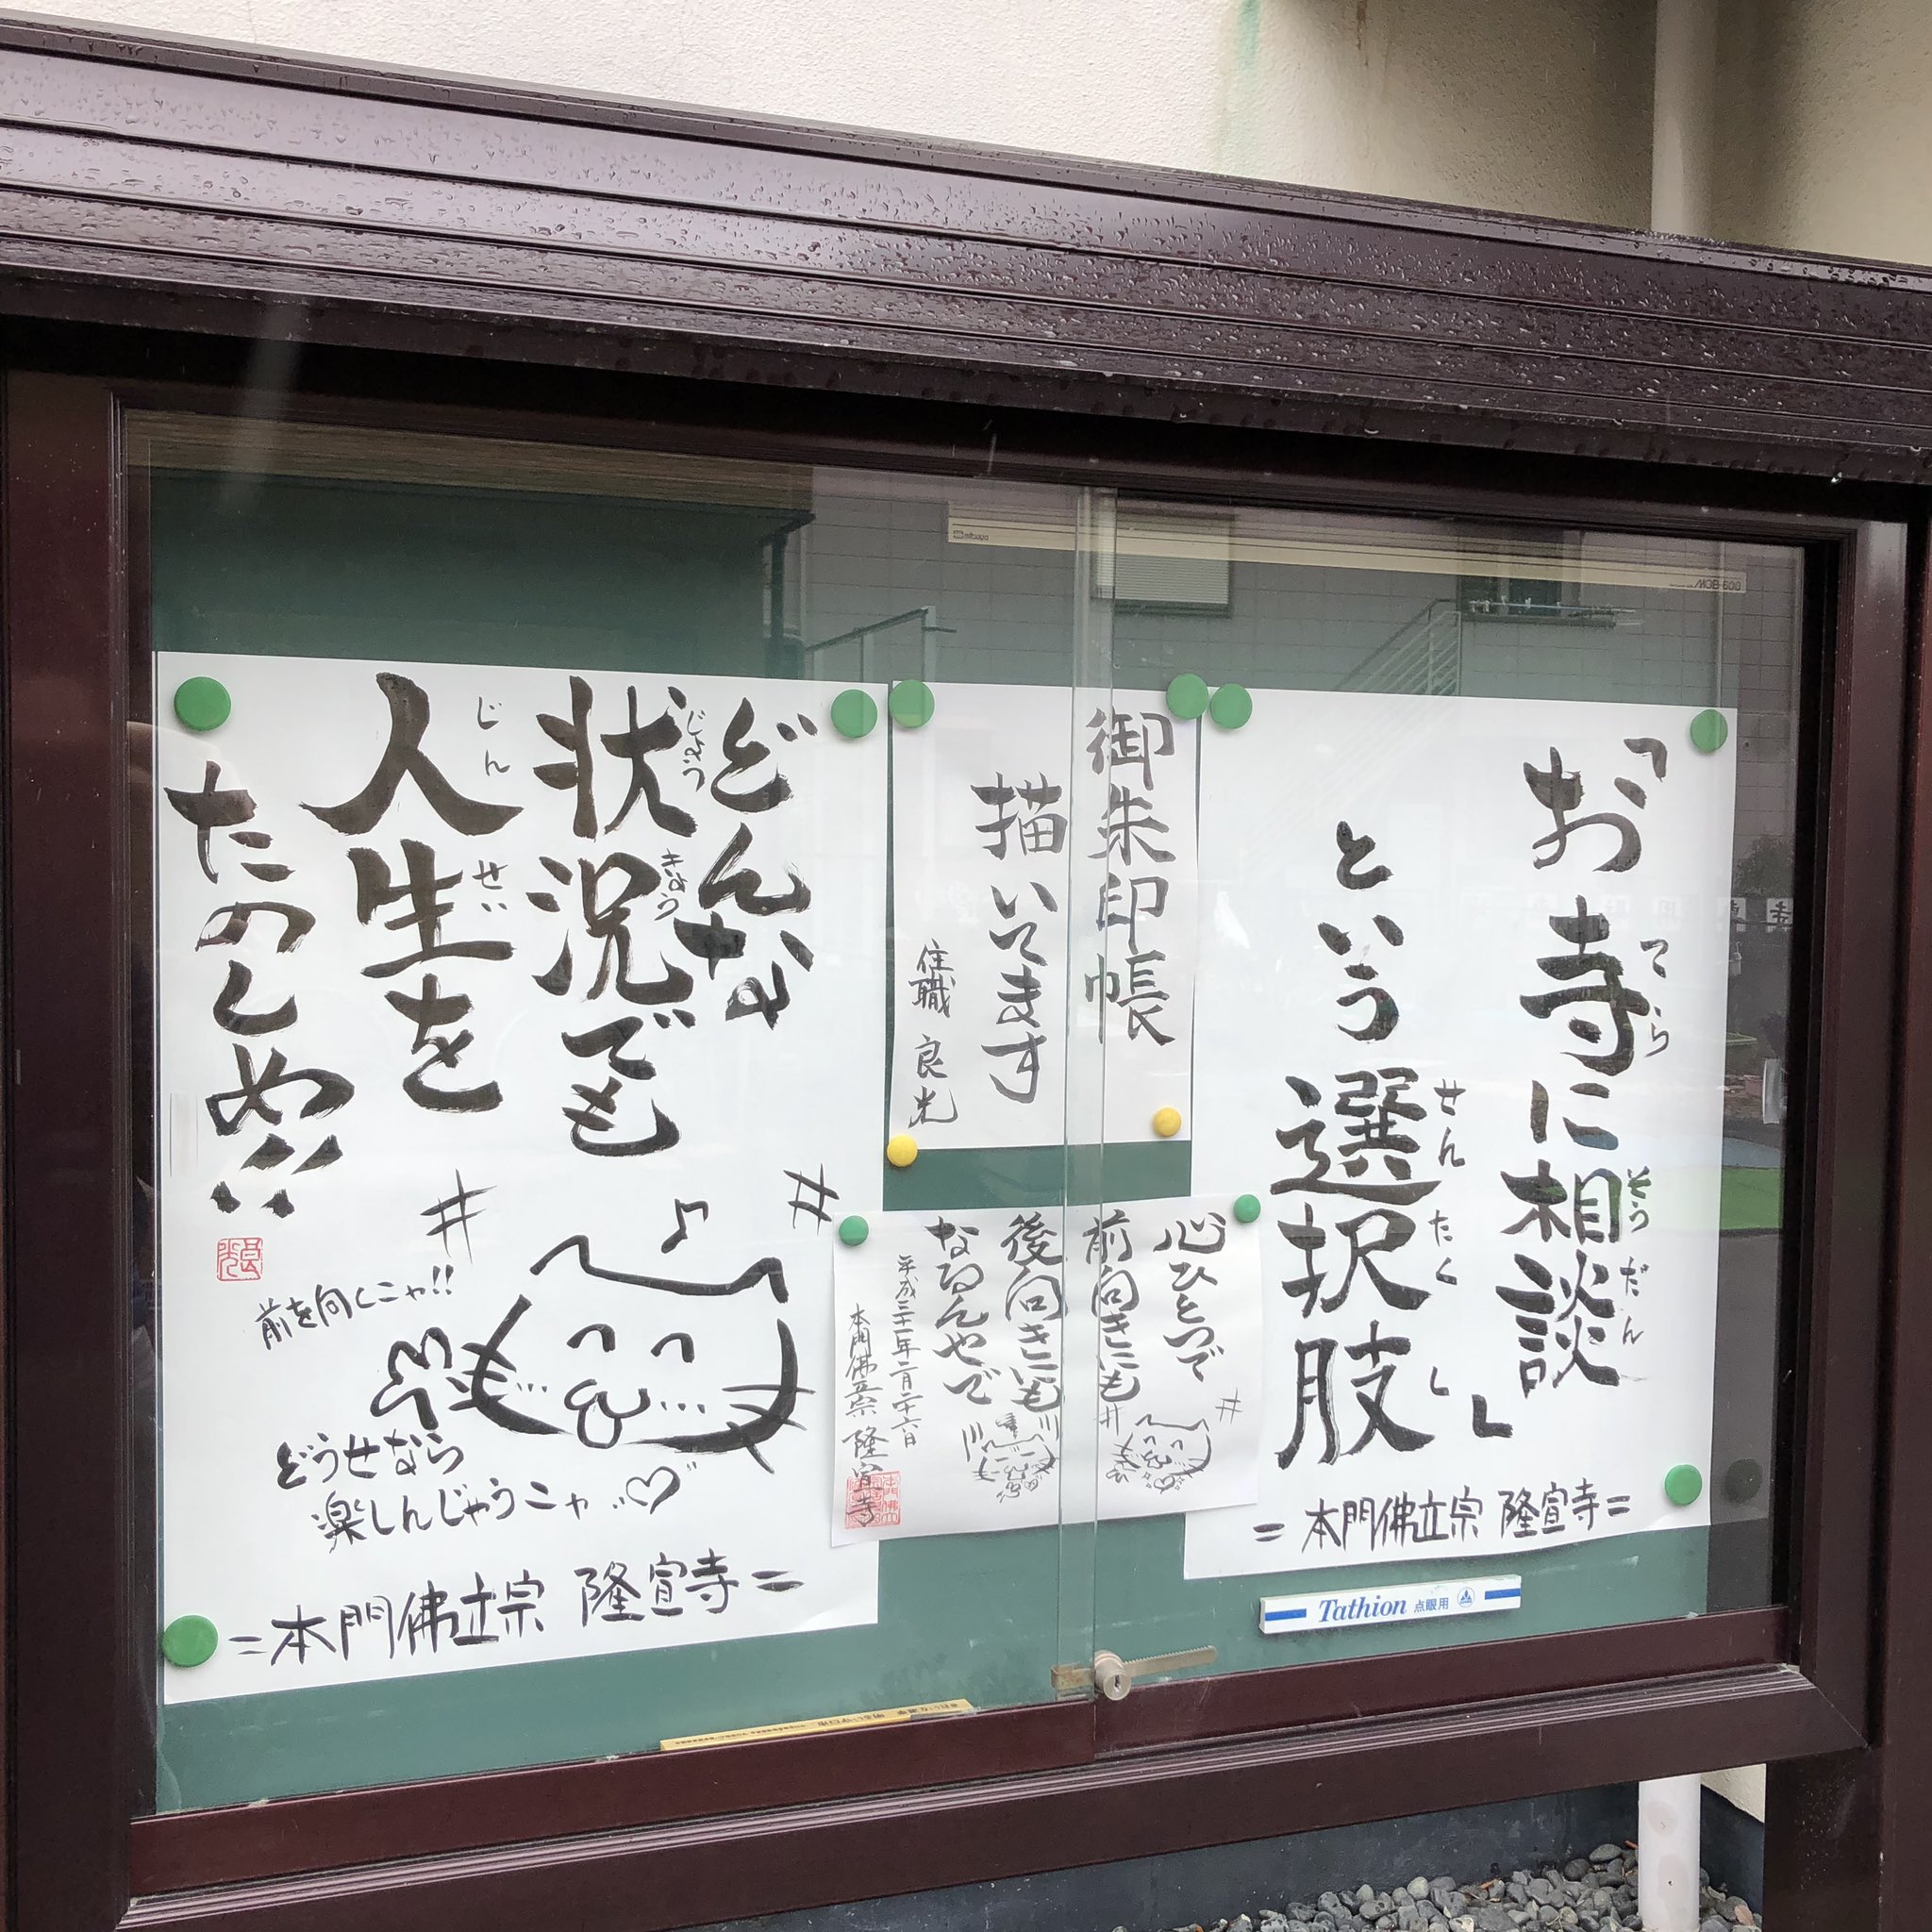 「お寺に相談
てら
そうだん
という選択肢」
せんたくし
=本門佛立宗 隆宣寺=
御朱印帳
描いてます
住職 良光
心ひとつで
前向きにも
後向きにも
なるんやで
平成三十一年二月二十六日
本門佛立宗 隆宣寺
どんな
状況でも
じょうきょう
人生を
じんせい
たのしめ!!
前を向くニャ!!
どうせなら
楽しんじゃうニャ
=本門佛立宗 隆宣寺=
Tathion 点眼用
mitsuya
MCB-600